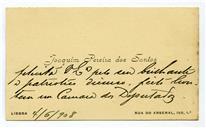 Joaquim Pereira dos Santos
felicita V. Exª pelo seu brilhante
e patriotico discurso, feito hon
tem na Camara dos Deputados
LISBOA 4/6/908 RUA DO ARSENAL, 150, 1.º